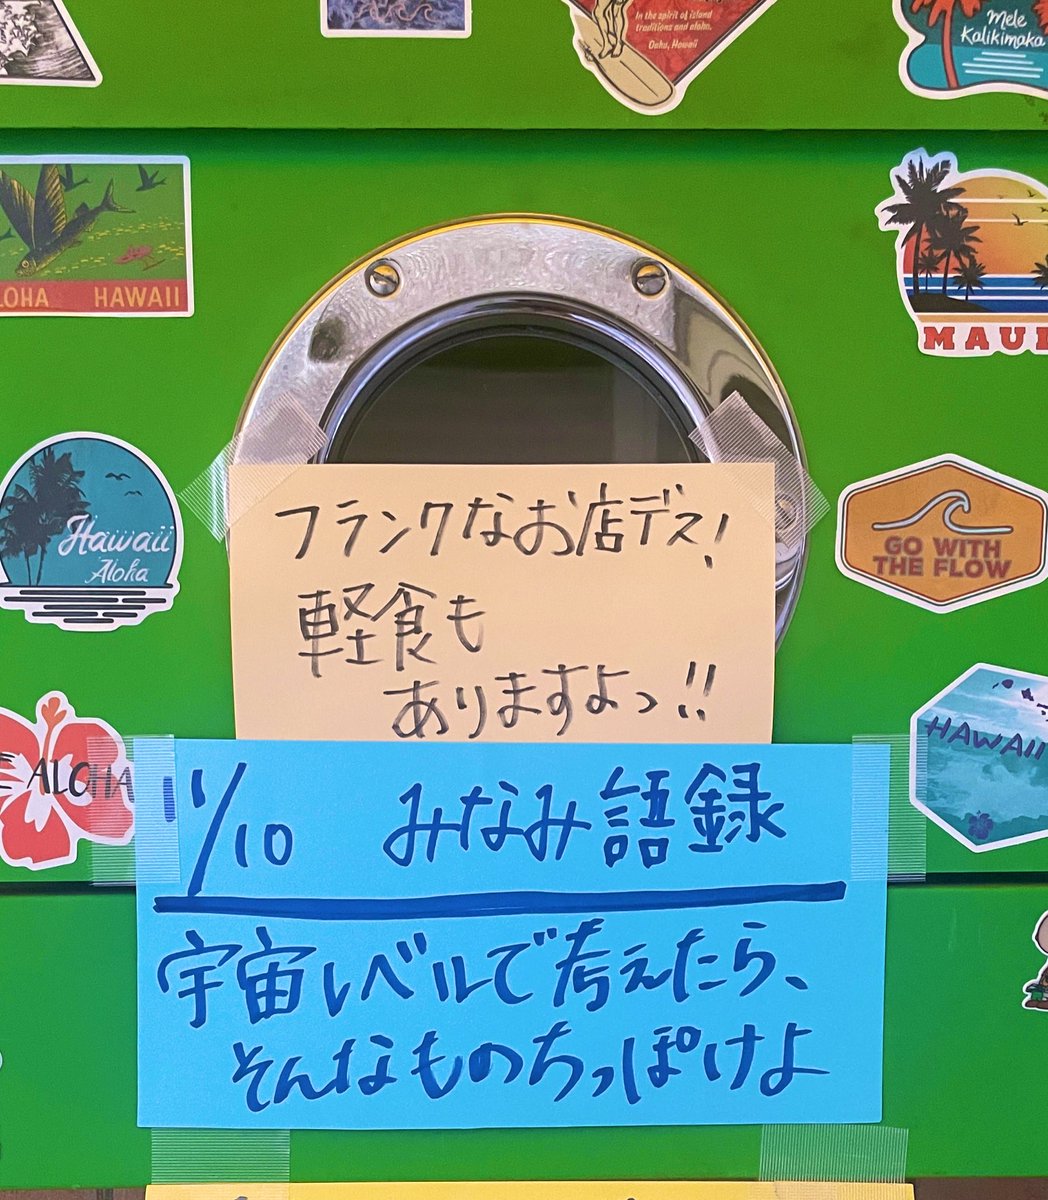 In the spirit of island
traditions and aloha.
Oahu, Hawaii
Mele
Kalikimaka
LOHA HAWAII
MAUI
Hawaii
Aloha
GO WITH
THE FLOW
フランクなお店デス!
軽食も
ありますよっ!!
ALOHA
HAWAII
11/10 みなみ語録
宇宙レベルで考えたら、
そんなものちっぽけよ